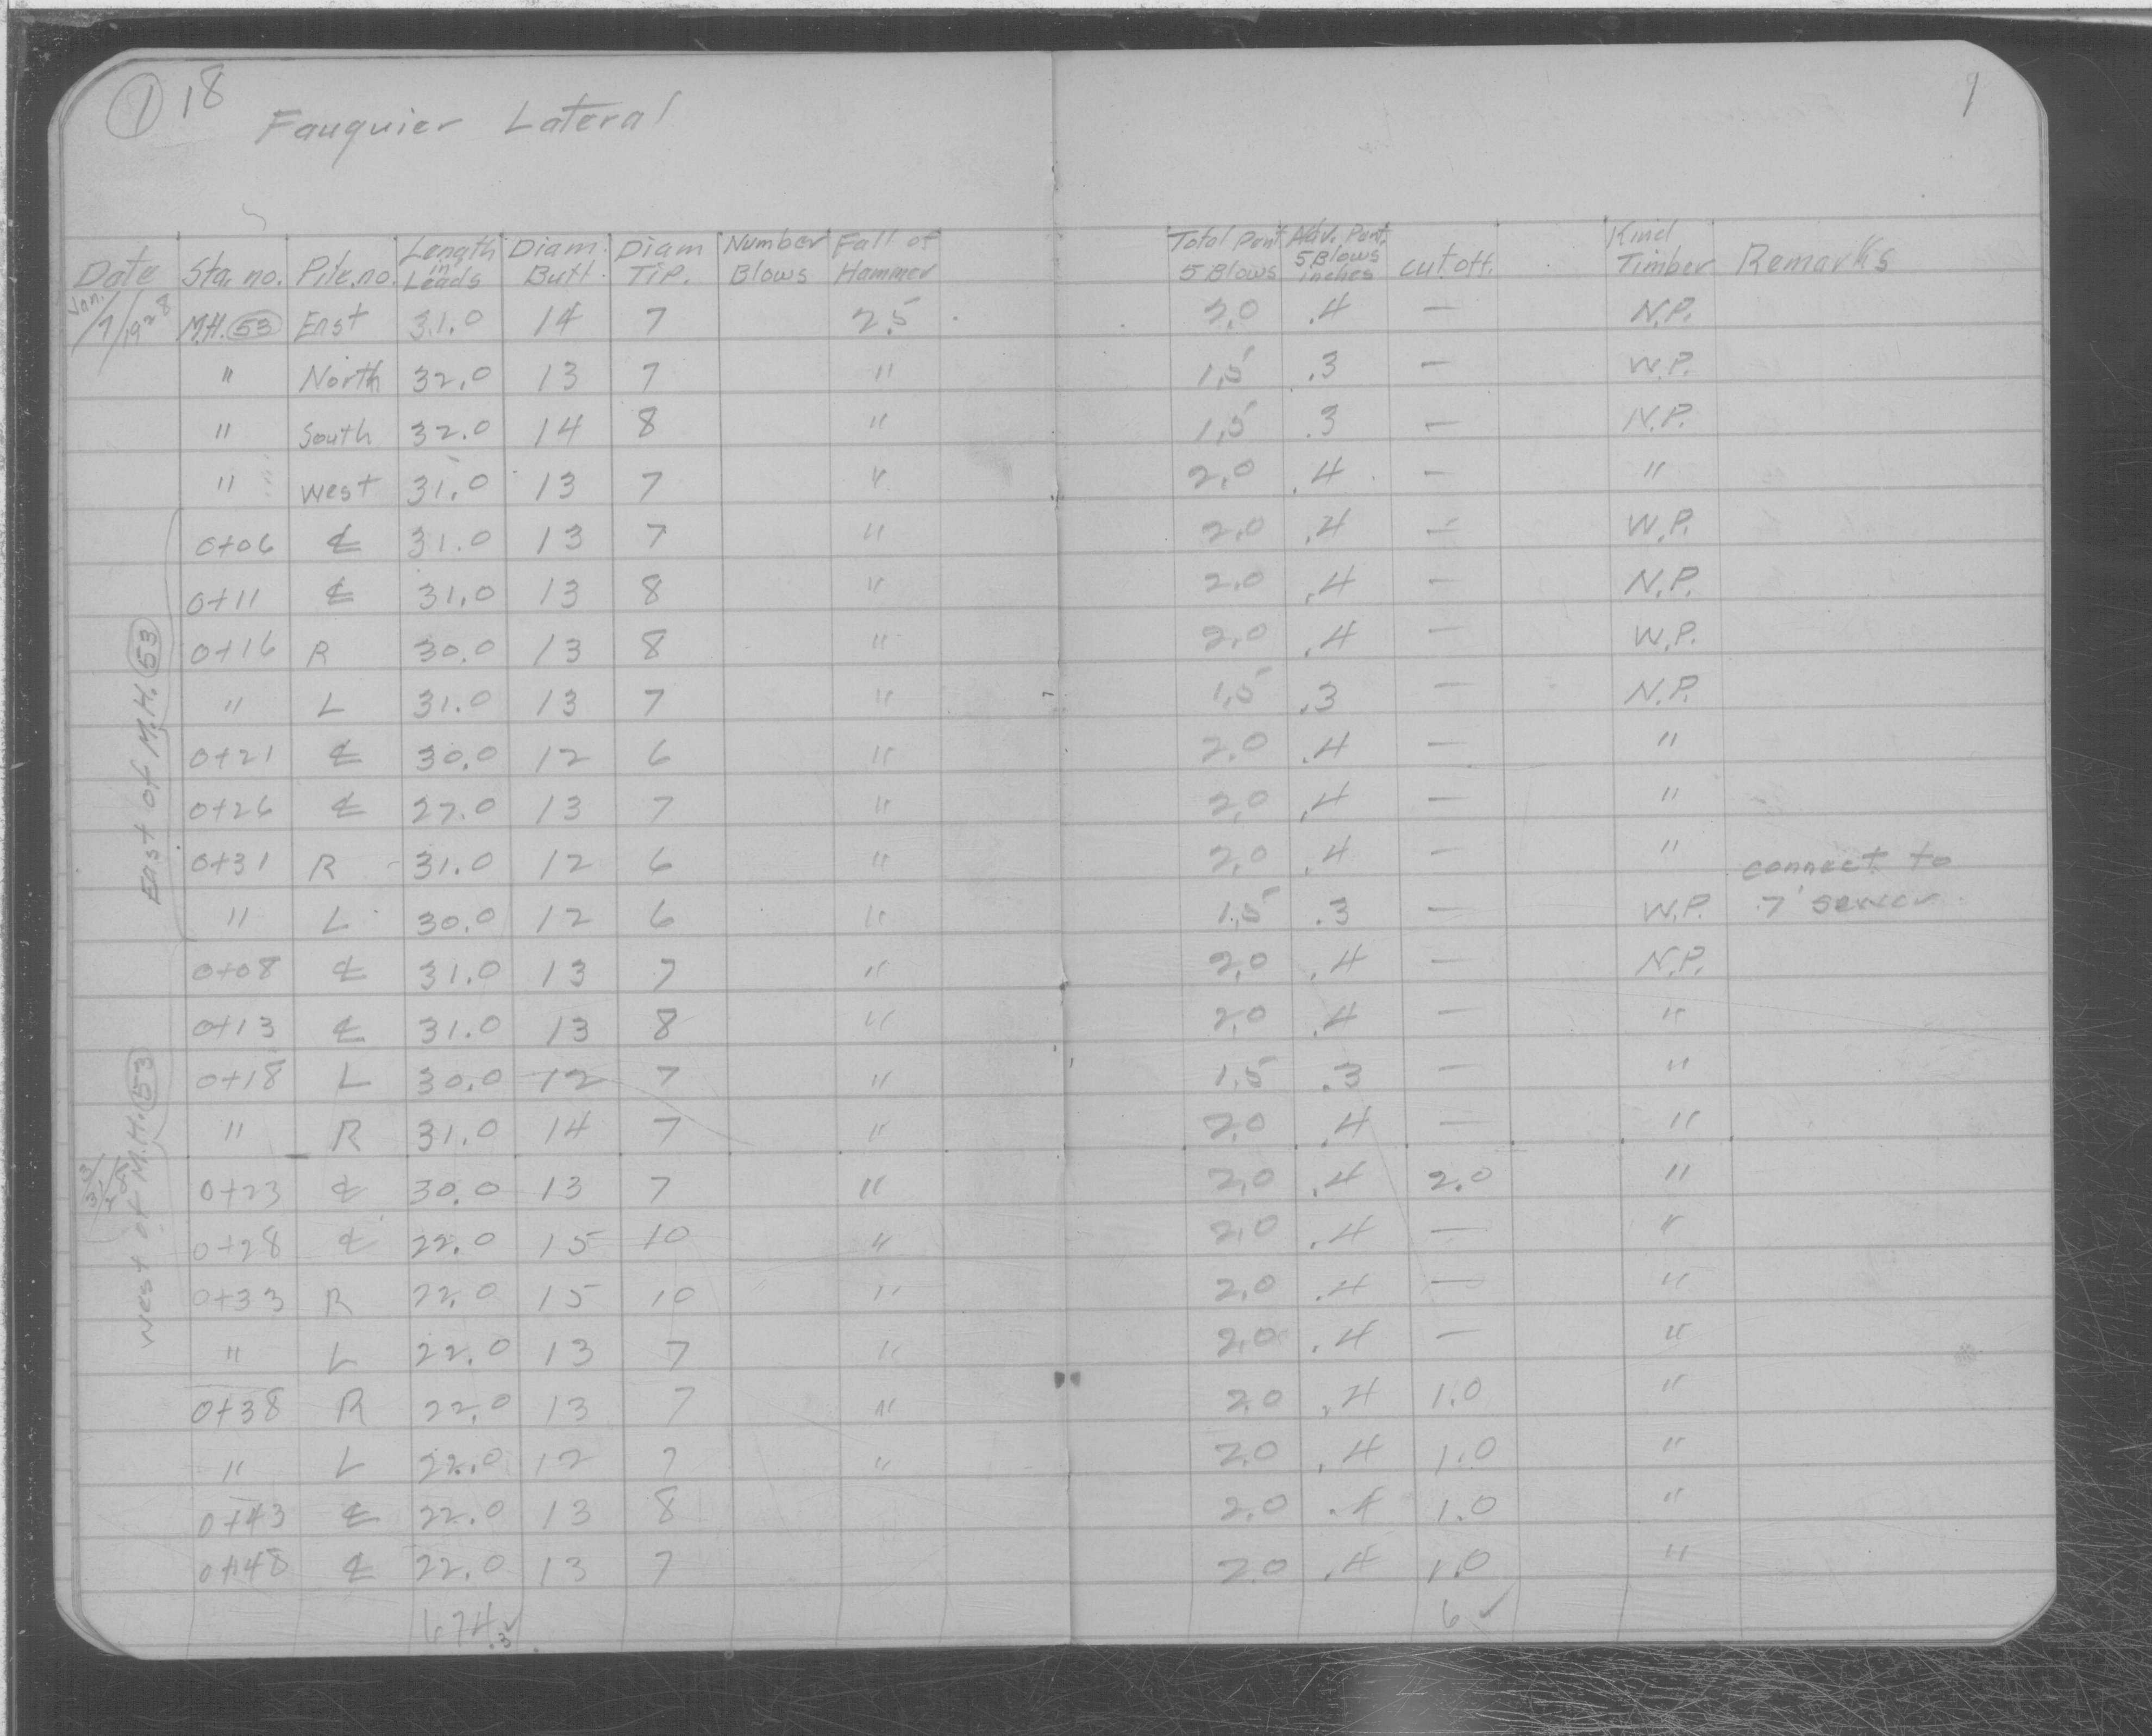 ① 18
Fauquier Lateral
Date Sta. no. Pile. no. Length in Leads Diam. Butt. Diam Tip. Number Blows Fall of Hammer Total Pent. 5 Blows Adv. Pent. 5 Blows inches cut off. Kind Timber Remarks
Jan. /7/1928 M.H. (53) East 31.0 14 7 25 2.0 .4 — N.P.
" North 32.0 13 7 " 1.5 .3 — W.P.
" South 32.0 14 8 " 1.5 .3 — N.P.
" West 31.0 13 7 " 2.0 .4 — "
East of M.H. (53)
0+06 ℄ 31.0 13 7 " 2.0 .4 — W.P.
0+11 ℄ 31.0 13 8 " 2.0 .4 — N.P.
0+16 R 30.0 13 8 " 2.0 .4 — W.P.
" L 31.0 13 7 " 1.5 .3 — N.P.
0+21 ℄ 30.0 12 6 " 2.0 .4 — "
0+26 ℄ 27.0 13 7 " 2.0 .4 — "
0+31 R 31.0 12 6 " 2.0 .4 — " connect to
" L 30.0 12 6 " 1.5 .3 — W.P. 7' sewer
West of M.H. (53)
0+08 ℄ 31.0 13 7 " 2.0 .4 — N.P.
0+13 ℄ 31.0 13 8 " 2.0 .4 — "
0+18 L 30.0 12 7 " 1.5 .3 — "
" R 31.0 14 7 " 2.0 .4 — "
0+23 ℄ 30.0 13 7 " 2.0 .4 2.0 "
0+28 ℄ 22.0 15 10 " 2.0 .4 — "
0+33 R 22.0 15 10 " 2.0 .4 — "
" L 22.0 13 7 " 2.0 .4 — "
0+38 R 22.0 13 7 " 2.0 .4 1.0 "
" L 22.0 12 7 " 2.0 .4 1.0 "
0+43 ℄ 22.0 13 8 2.0 .4 1.0 "
0+48 ℄ 22.0 13 7 2.0 .4 1.0 "
674 6 ✓